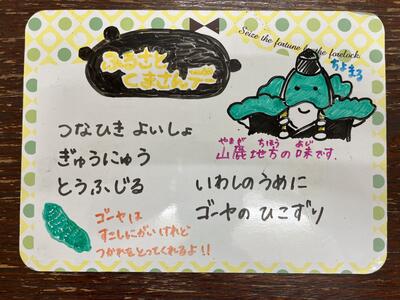 Seize the fortune by the forelock.
ふるさと
くまさんデー
ちよまる
やまが ちほう あじ
山鹿地方の味です.
つなひき よいしょ
ぎゅうにゅう
とうふじる
いわしのうめに
ゴーヤのひこずり
ゴーヤは
すこしにがいけれど
つかれをとってくれるよ!!